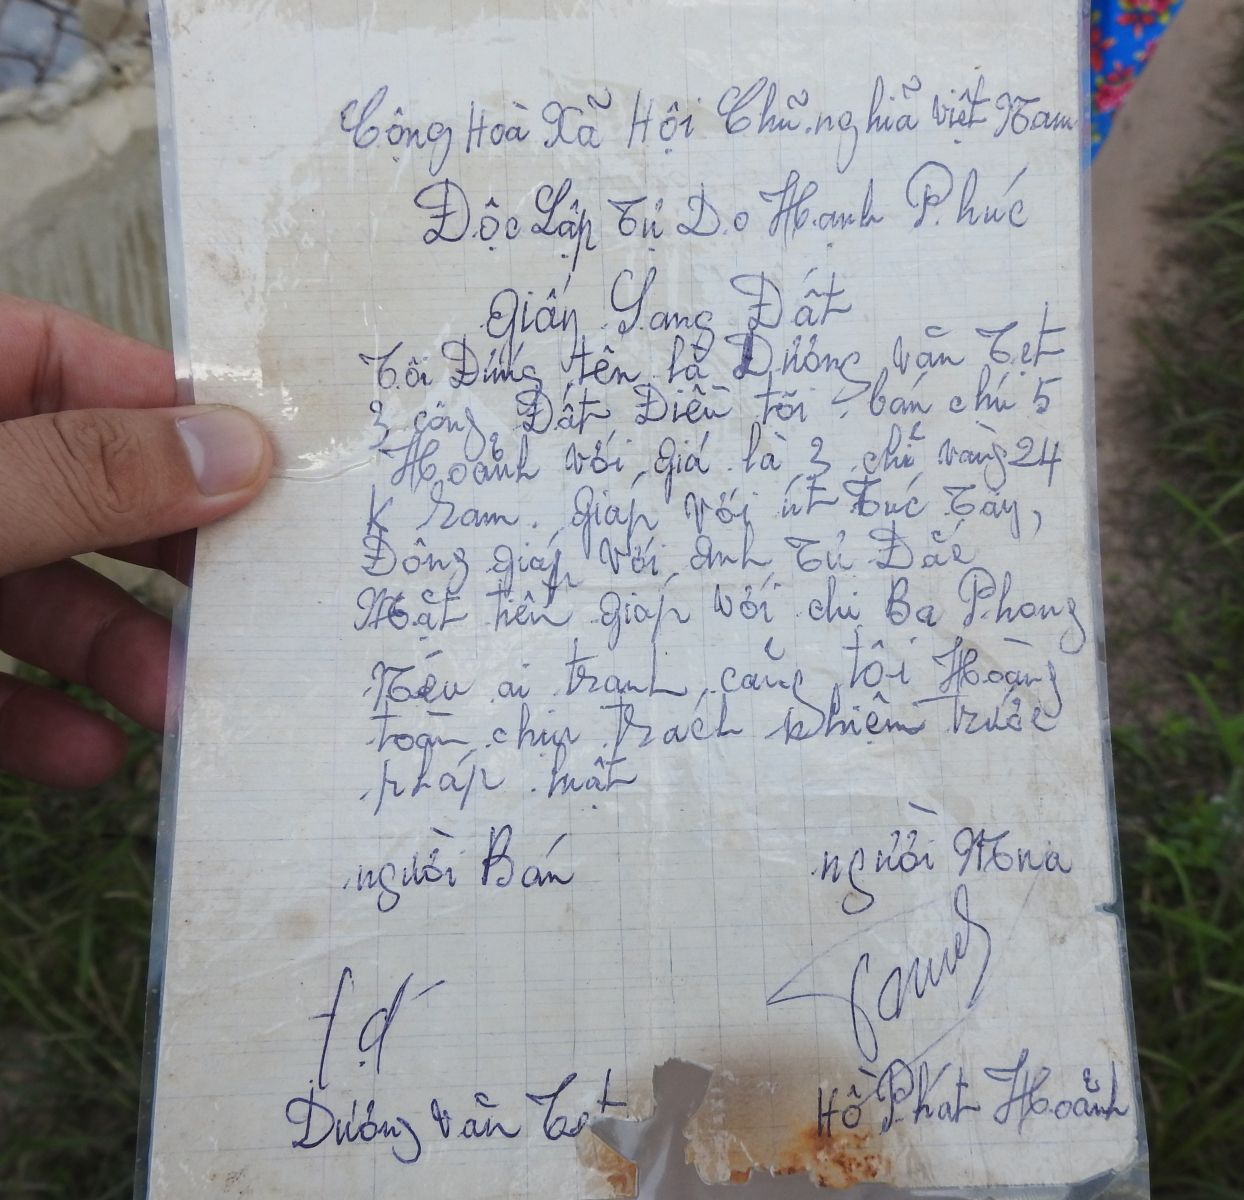 Cộng Hoà Xã Hội Chũ nghiã việt Nam
Độc Lập Tự Do Hạnh Phúc
Giấy Sang Đất
Tôi Đứng tên là Dương văn Tẹt
3 công Đất Điền tôi bán chú 5
Hoảnh với giá là 3 chỉ vàng 24
K Ram. giáp với út Túc Tây,
Đông giáp với anh Tư Đắc
Mặt tiền giáp với chi Ba Phong
Nếu ai tranh cảng tôi Hoàng
toàn chịu trách nhiệm trước
pháp luật
người Bán
người Mua
Dương văn Tẹt
Hồ Phát Hoảnh